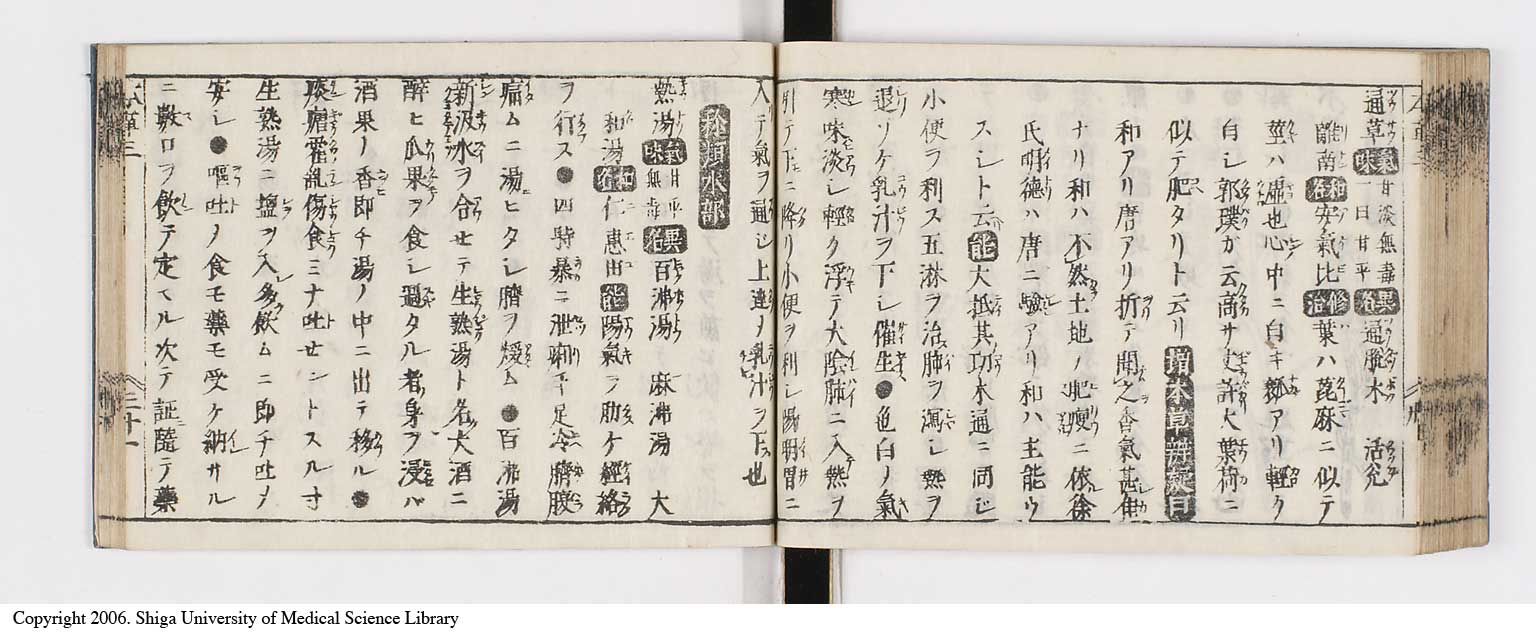 通草 氣味 甘淡無毒 一曰甘平 異名 通脱木 活兊
離南 和名 安氣比 修治 葉ハ萆麻ニ似テ
莖ハ虚也心中ニ白キ瓤アリ輕ク
白シ郭璞ガ云高サ丈許大葉荷ニ
似テ肥タリト云リ 増本草辨疑曰
和アリ唐アリ折テ聞之香氣甚隹
ナリ和ハ不然土地ノ肥瘦ニ依徐
氏明德ハ唐ニ驗アリ和ハ主能ウ
スシト云 能 大抵其功木通ニ同ジ
小便ヲ利ス五淋ヲ治肺ヲ瀉シ熱ヲ
退ソケ乳汁ヲ下シ催生●色白ノ氣
寒味淡シ輕ク浮テ大陰肺ニ入熱ヲ
引テ下ニ降リ小便ヲ利シ陽明胃ニ
入テ氣ヲ通シ上達メ乳汁ヲ下ス也
水部
熱湯 氣味 甘平無毒 異名 百沸湯 麻沸湯 大
和湯 和名 仁惠由 能 陽氣ヲ助ケ經絡
ヲ行ス●四時暴ニ泄痢手足冷臍腹
痛ムニ湯ヒタシ臍ヲ煖ム●百沸湯
新汲水ヲ合セテ生熟湯ト名大酒ニ
醉ヒ瓜果ヲ食シ過タル者身ヲ浸バ
酒果ノ香即チ湯ノ中ニ出テ移ル●
痰瘧霍亂傷食ミナ吐セントスル寸
生熟湯ニ塩ヲ入多飲ムニ即チ吐メ
安シ●嘔吐ノ食モ藥モ受ケ納サル
ニ數口ヲ飲テ定マル次テ証隨テ藥
三十一
Copyright 2006. Shiga University of Medical Science Library